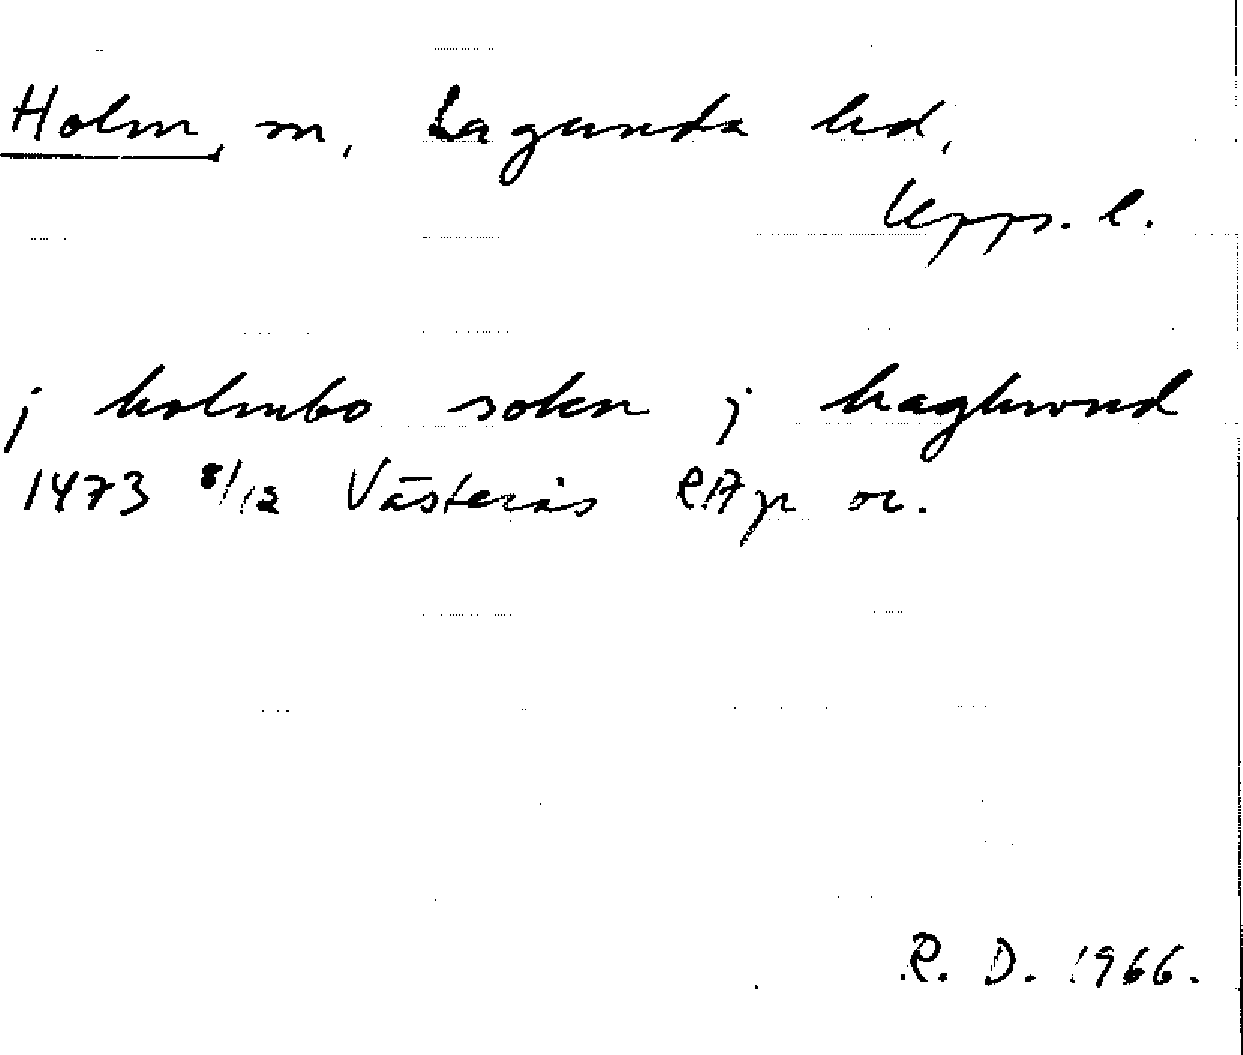 Holm, sn, Lagunda hd,
Upps. l.
j holmbo sokn j haghwnd
1473 8/12 Västerås RAp or.
R. D. 1966.